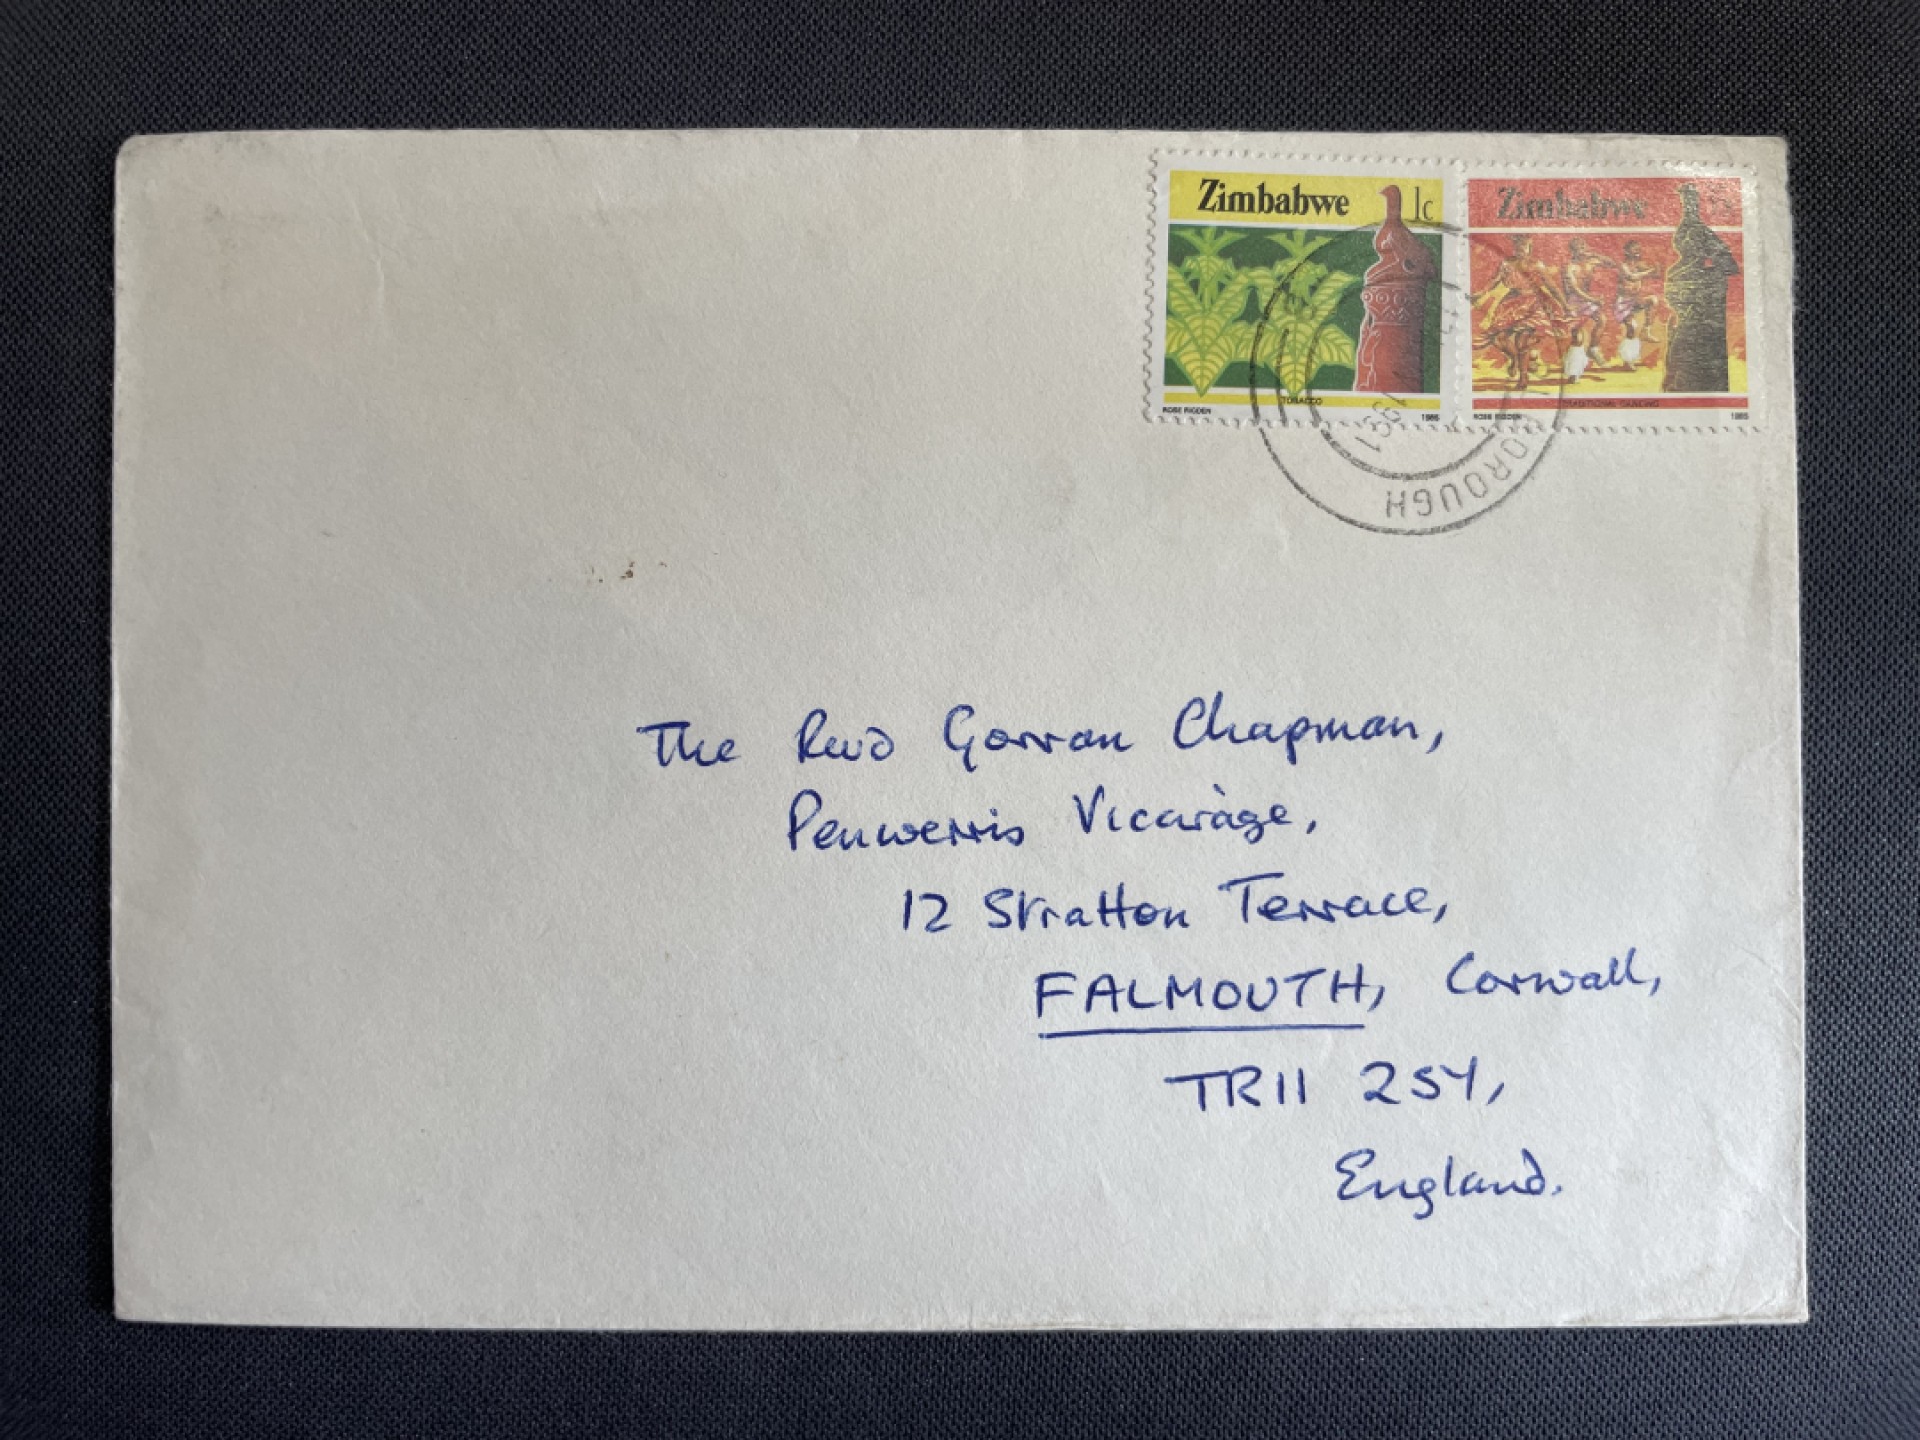 Zimbabwe 1c
TOBACCO
ROSE RIGDEN 1985
Zimbabwe
TRADITIONAL DANCING
ROSE RIGDEN 1985
1991
OROUGH
The Revd Gorran Chapman,
Penwerris Vicarage,
12 Stratton Terrace,
FALMOUTH, Cornwall,
TR11 2SY,
England.